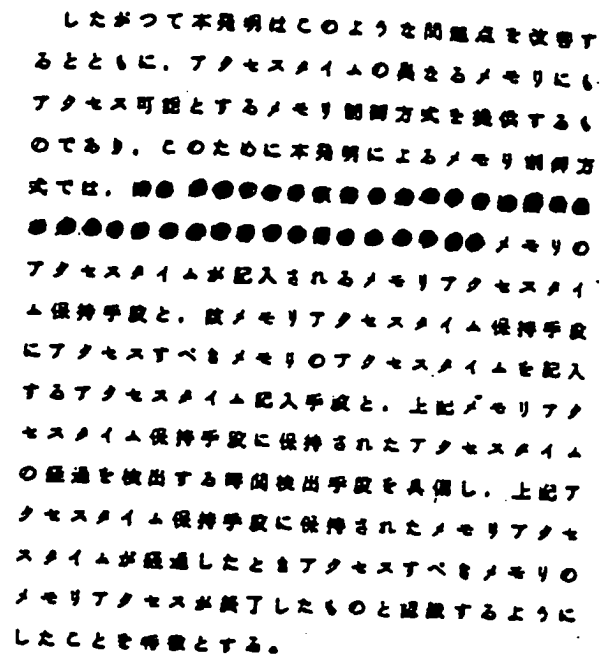 したがつて本発明はこのような問題点を改善す
るとともに、アクセスタイムの異なるメモリにも
アクセス可能とするメモリ制御方式を提供するも
のであり、このために本発明によるメモリ制御方
式では、
メモリの
アクセスタイムが記入されるメモリアクセスタイ
ム保持手段と、該メモリアクセスタイム保持手段
にアクセスすべきメモリのアクセスタイムを記入
するアクセスタイム記入手段と、上記メモリアク
セスタイム保持手段に保持されたアクセスタイム
の経過を検出する時間検出手段を具備し、上記ア
クセスタイム保持手段に保持されたメモリアクセ
スタイムが経過したときアクセスすべきメモリの
メモリアクセスが終了したものと認識するように
したことを特徴とする。